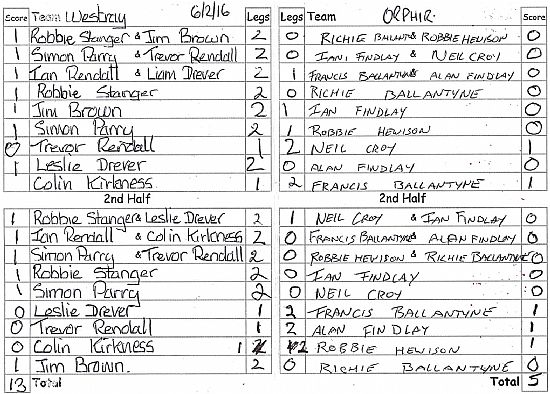 Score Team Westray 6/2/16 Legs Legs Team ORPHIR Score
1 Robbie Stanger & Jim Brown 2 0 RICHIE BALLANTYNE & ROBBIE HEWISON 0
1 Simon Parry & Trevor Rendall 2 0 IAN FINDLAY & NEIL CROY 0
1 Ian Rendall & Liam Drever 2 1 FRANCIS BALLANTYNE & ALAN FINDLAY 0
1 Robbie Stanger 2 0 RICHIE BALLANTYNE 0
1 Jim Brown 2 1 IAN FINDLAY 0
1 Simon Parry 2 1 ROBBIE HEWISON 0
0 Trevor Rendall 1 2 NEIL CROY 1
1 Leslie Drever 2 0 ALAN FINDLAY 0
Colin Kirkness 1 2 FRANCIS BALLANTYNE 1
2nd Half 2nd Half
1 Robbie Stanger & Leslie Drever 2 1 NEIL CROY & IAN FINDLAY 0
1 Ian Rendall & Colin Kirkness 2 0 FRANCIS BALLANTYNE & ALAN FINDLAY 0
1 Simon Parry & Trevor Rendall 2 0 ROBBIE HEWISON & RICHIE BALLANTYNE 0
1 Robbie Stanger 2 0 IAN FINDLAY 0
1 Simon Parry 2 0 NEIL CROY 0
0 Leslie Drever 1 2 FRANCIS BALLANTYNE 1
0 Trevor Rendall 1 2 ALAN FINDLAY 1
0 Colin Kirkness 1 2 ROBBIE HEWISON 1
1 Jim Brown. 2 0 RICHIE BALLANTYNE 0
13 Total Total 5